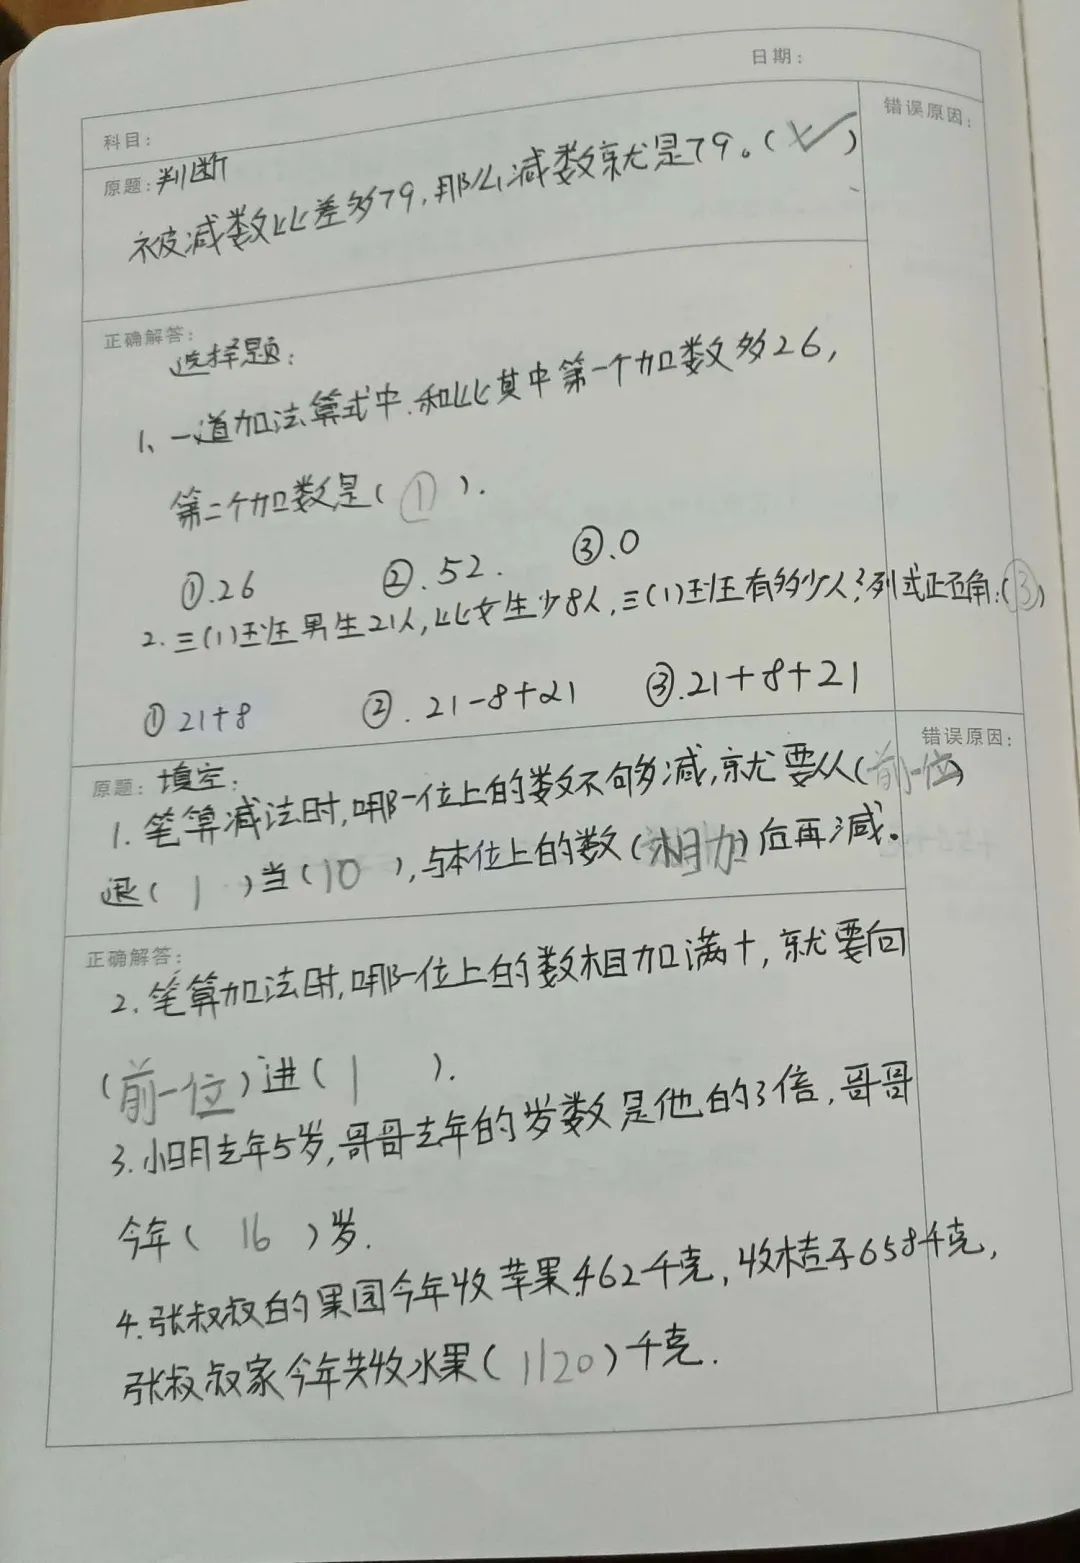 日期：
科目：
错误原因：
原题：判断
被减数比差多79，那么减数就是79。（✓）
正确解答：
选择题：
1、一道加法算式中，和比其中第一个加数多26，
第二个加数是（①）．
①.26 ②.52. ③.0
2.三（1）班男生21人，比女生少8人，三（1）班有多少人？列式正确：（③）
①21+8 ②.21-8+21 ③.21+8+21
错误原因：
原题：填空：
1.笔算减法时，哪一位上的数不够减，就要从（前一位）
退（1）当（10），与本位上的数（相加）后再减。
正确解答：
2.笔算加法时，哪一位上的数相加满十，就要向
（前一位）进（1）．
3.小明去年5岁，哥哥去年的岁数是他的3倍，哥哥
今年（16）岁．
4.张叔叔的果园今年收苹果462千克，收桔子658千克，
张叔叔家今年共收水果（1120）千克．